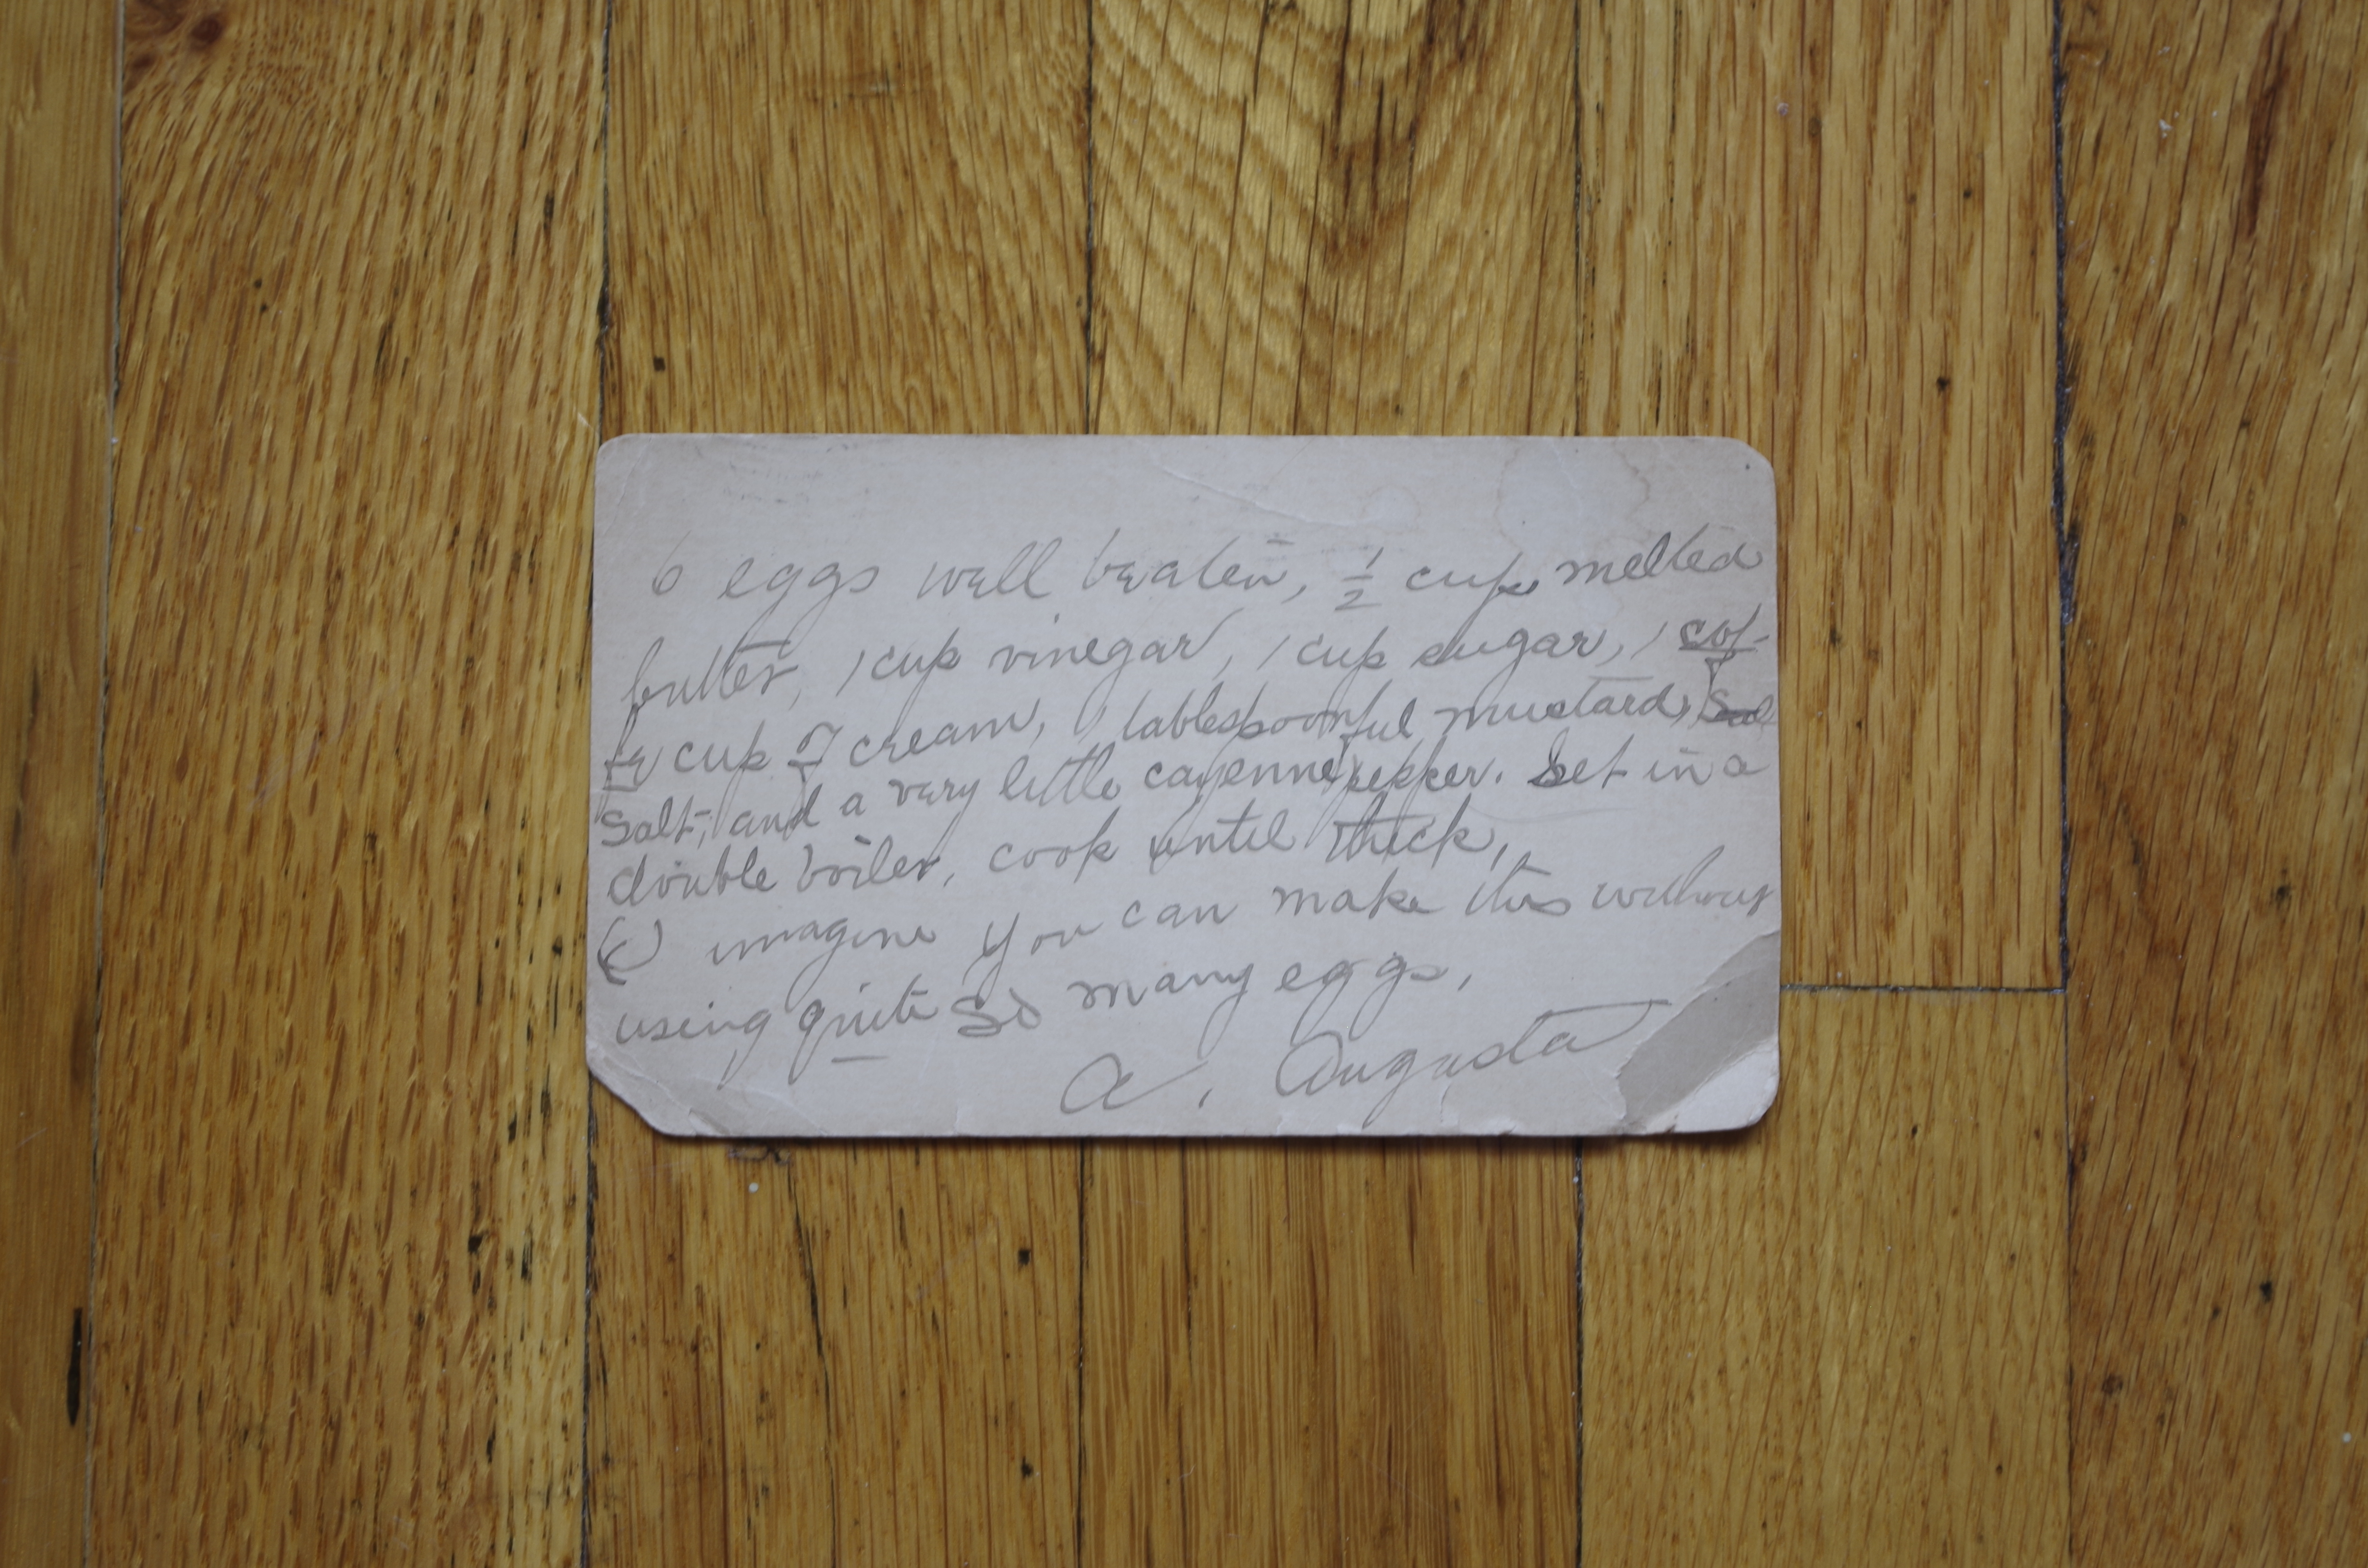 6 eggs well beaten, ½ cup melted
butter, 1 cup vinegar, 1 cup sugar, 1 cof-
fe cup of cream, 1 tablespoonful mustard,
salt, and a very little cayenne pepper. Set in a
double boiler, cook until thick,
(I) imagine you can make this without
using quite so many eggs,
A. Augusta